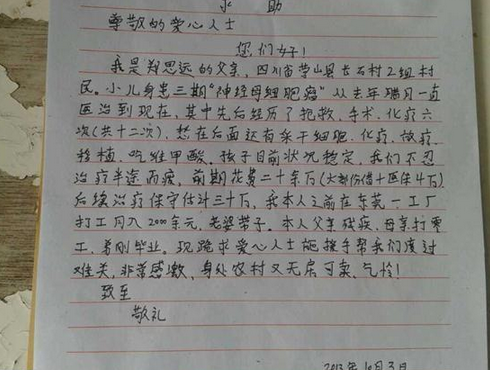 求 助
尊敬的爱心人士
您们好!
我是郑思远的父亲,四川省营山县长石村2组村
民。小儿身患三期"神经母细胞瘤"从去年腊月一直
医治到现在,其中先后经历了抢救,手术,化疗六
次(共十二次),想在后面还有杀干细胞、化疗、放疗、
移植、吃维甲酸,孩子目前状况稳定,我们不忍
治疗半途而废,前期花费二十余万(大部份借+医保4万)
后续治疗保守估计三十万,我本人之前在东莞一工厂
打工月入2000余元,老婆带子。本人父亲残疾,母亲打零
工,弟刚毕业,现跪求爱心人士施援手帮我们度过
难关,非常感激,身处农村又无房可卖、乞怜!
致至
敬礼
2013年10月3日